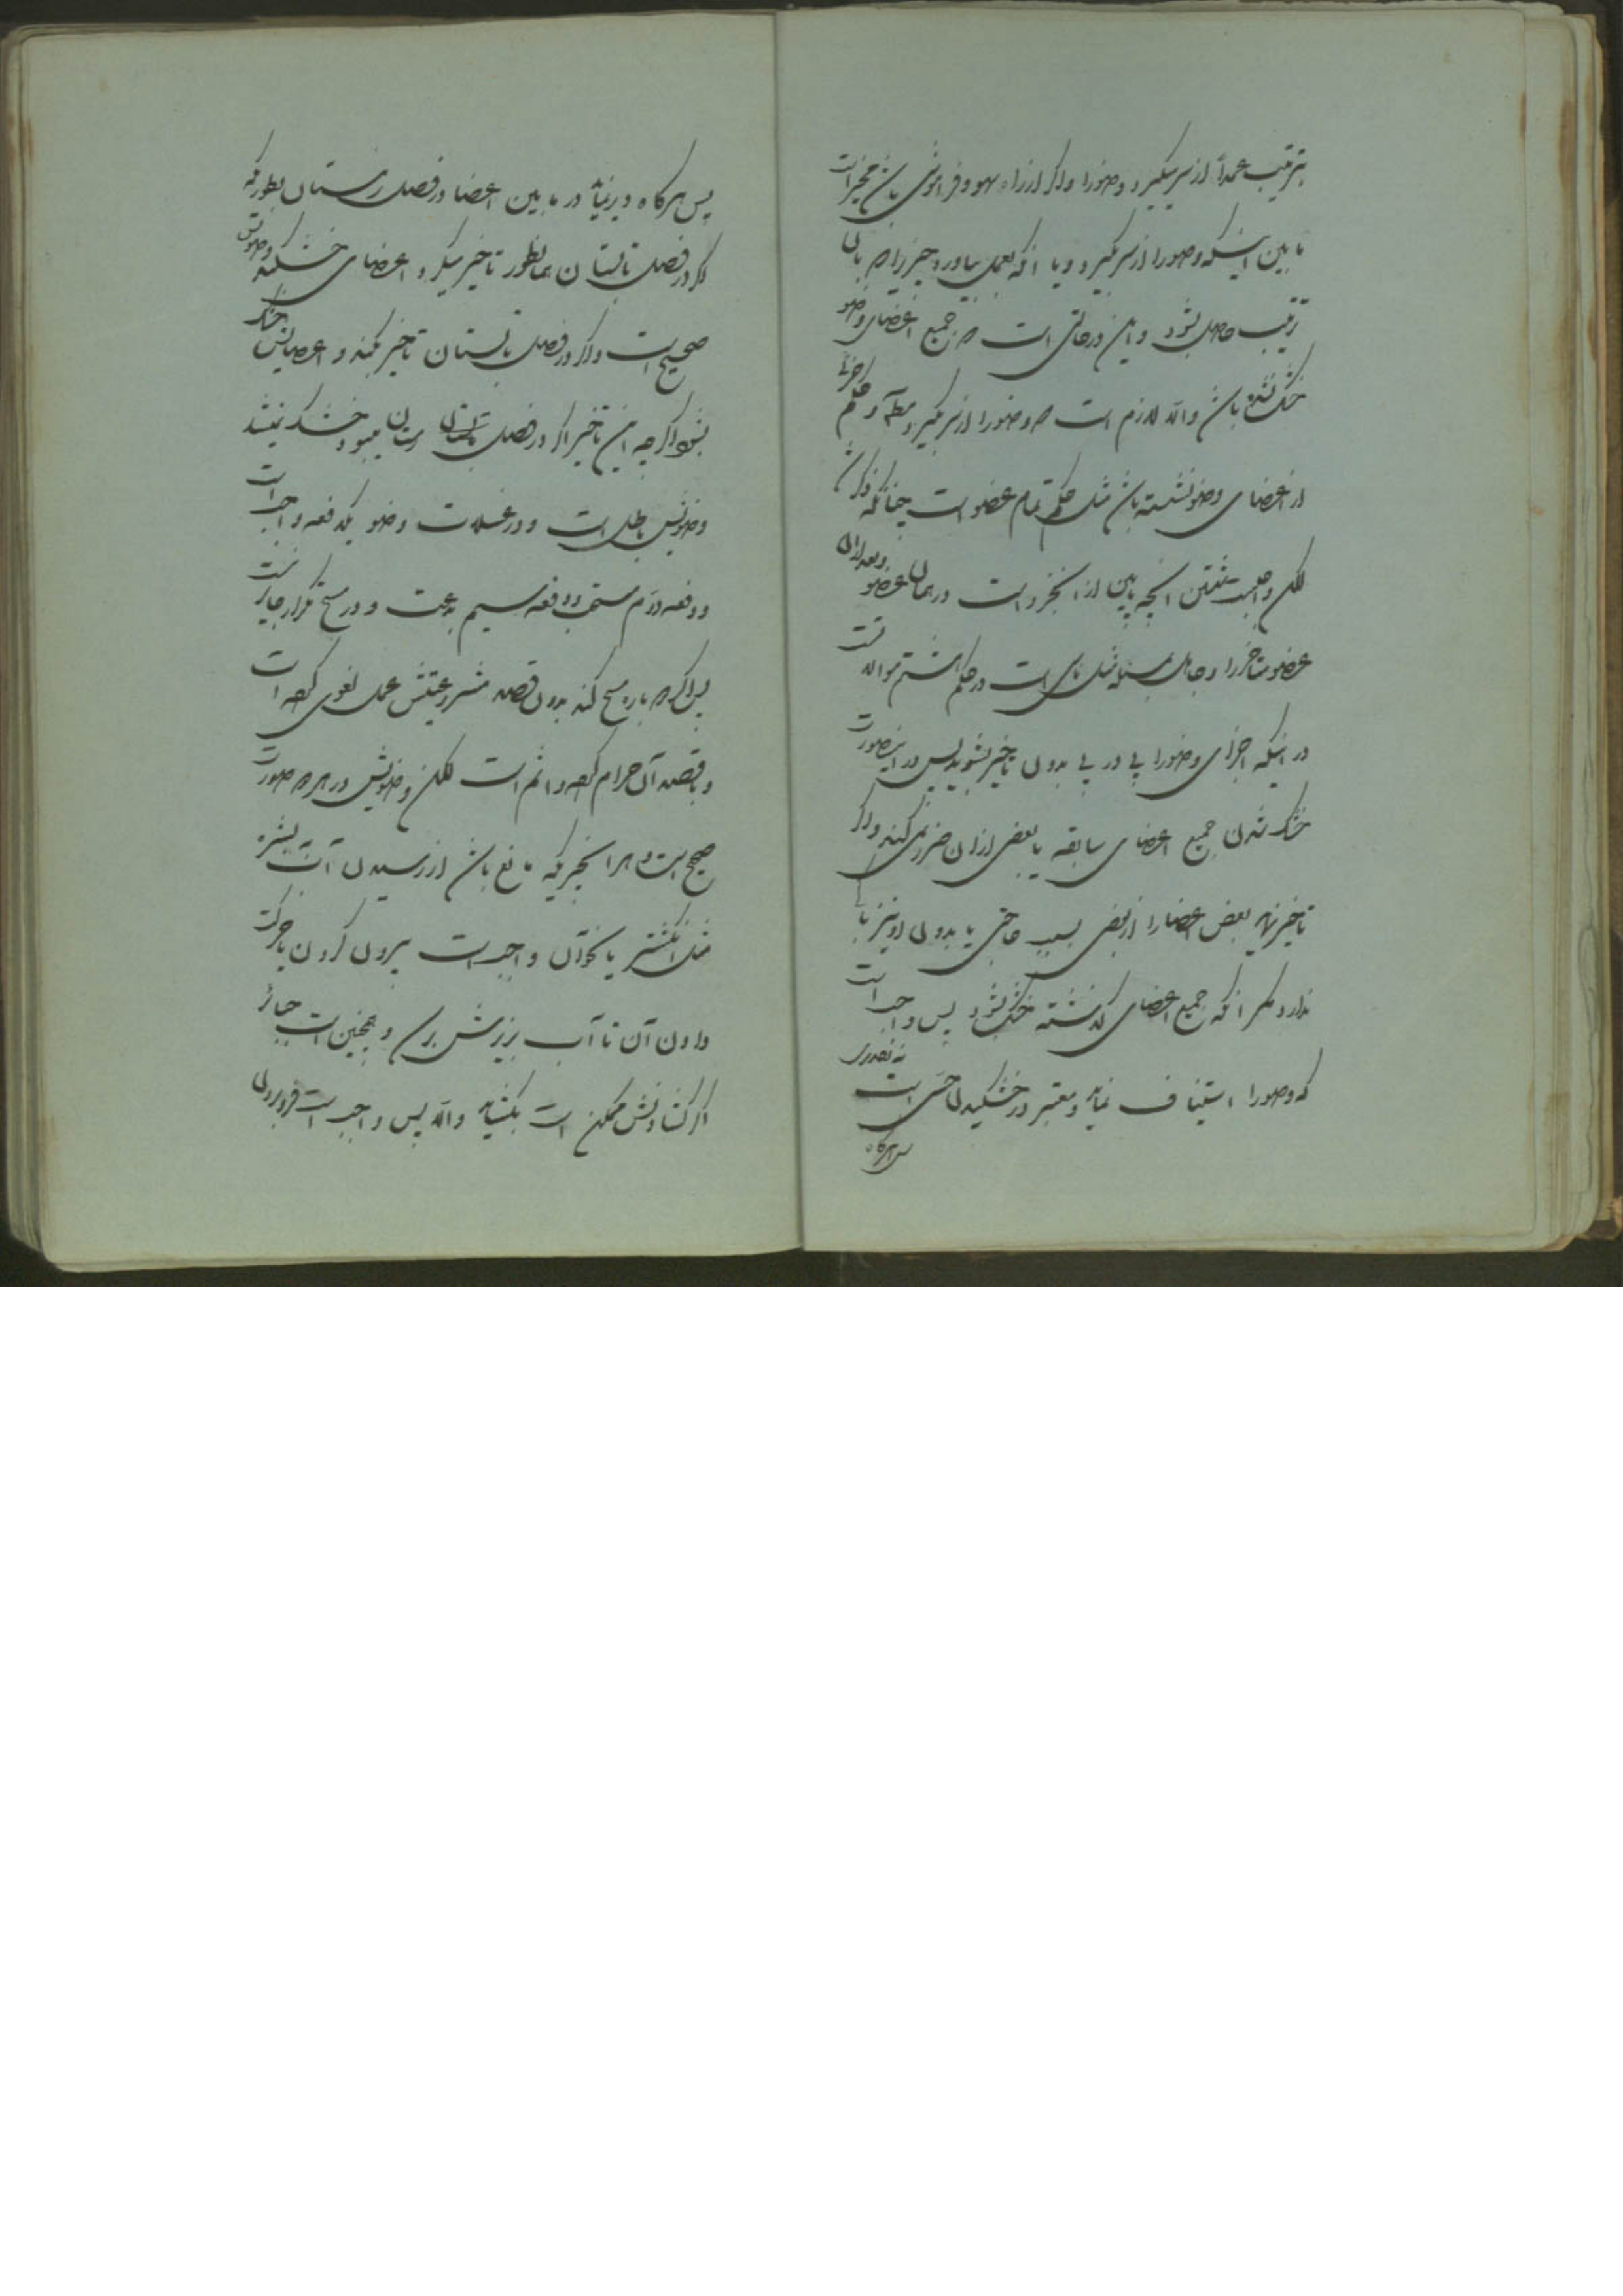 بترتیب عمداً از سر بگیرد وضو را و اگر از راه سهو و فراموشی باشد مخیر است
ما بین اینکه وضو را از سر بگیرد و یا آنکه بعمل بیاورد چیزیرا که بآن
ترتیب حاصل بشود و این در حالتی است که جمیع اعضای وضو
خشک نشده باشد والا لازم است که وضو را از سر بگیرد و حکم اجزائی
از اعضای وضو نشسته باشد مثل حکم تمام عضو است چنانکه ذکر شد
لکن واجبست شستن آنچه پایین از آنجزو است در همان عضو و بعد از آن
عضو متأخر را و جاهل بمسئله مثل ناسی است در حکم هشتم موالات
در اینکه اجزای وضو را پی در پی بدون تأخیر بشوید پس در اینصورت
خشک شدن جمیع اعضای سابقه یا بعضی از آن ضرر نمی کند و اگر
تأخیر نماید بعض اعضا را از بعضی بسبب حاجتی یا بدون او نیز
ندارد مگر آنکه جمیع اعضای گذشته خشک بشود پس واجب است
که وضو را استیناف نماید و معتبر در خشکیدن حسی است نه تقدیری
پس هرگاه
پس هرگاه دیر نماید در ما بین اعضا در فصل زمستان بطوریکه
اگر در فصل تابستان همانطور تأخیر میکرد اعضای خشکیده وضویش
صحیح است و اگر در فصل تابستان تأخیر بکند و اعضایش خشک
بشود اگر چه این تأخیر اگر در فصل زمستان میبود خشک نمیشد
وضویش باطل است و در غسلات وضو یکدفعه واجب است
و دفعه دوم مستحب و دفعه سیم بدعت و در مسح تکرار جایز نیست
پس اگر دو باره مسح کند بدون قصد مشروعیتش عمل لغوی کرده است
و با قصد آن حرام کرده و اثم است لکن وضویش در هر دو صورت
صحیح است و هر آنچیزیکه مانع باشد از رسیدن آب ببشره
مثل انگشتر یا نحو آن واجب است بیرون کردن یا حرکت
دادن آن تا آب بزیرش برسد و همچنین است
اگر گشادنش ممکن است بگشاید والا پس واجب است فرو بردن